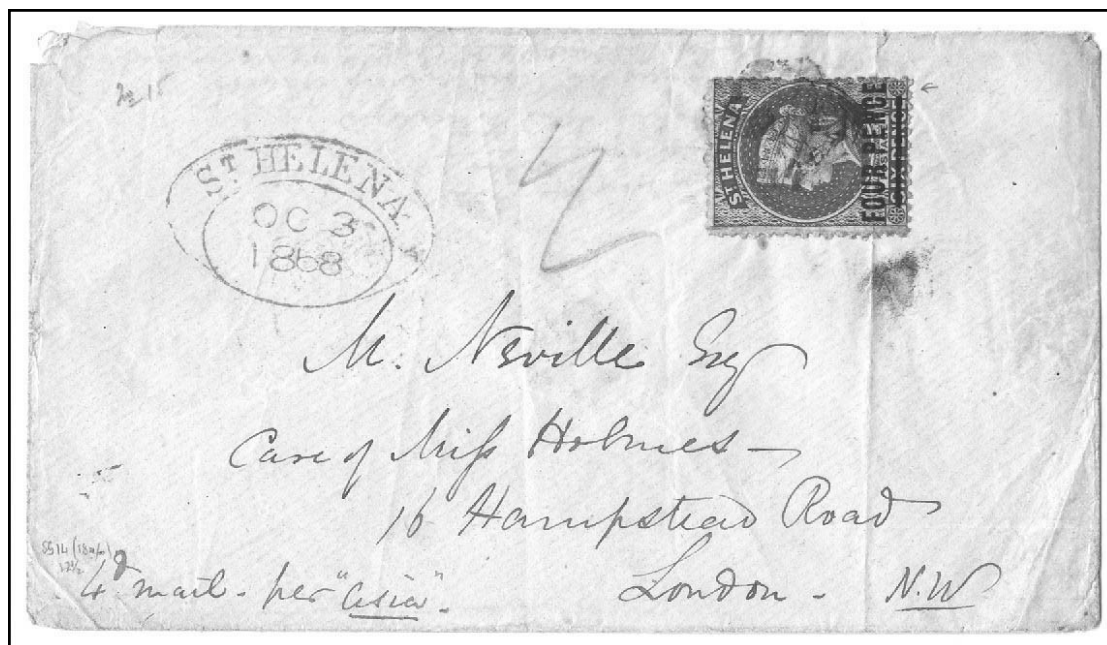 St HELENA
OC 3
1868
ST HELENA
FOUR PENCE
SIX PENCE
M. Neville Esq
Care of Miss Holmes —
16 Hampstead Road
London - N.W
4d mail - per "Asia".
SG 14